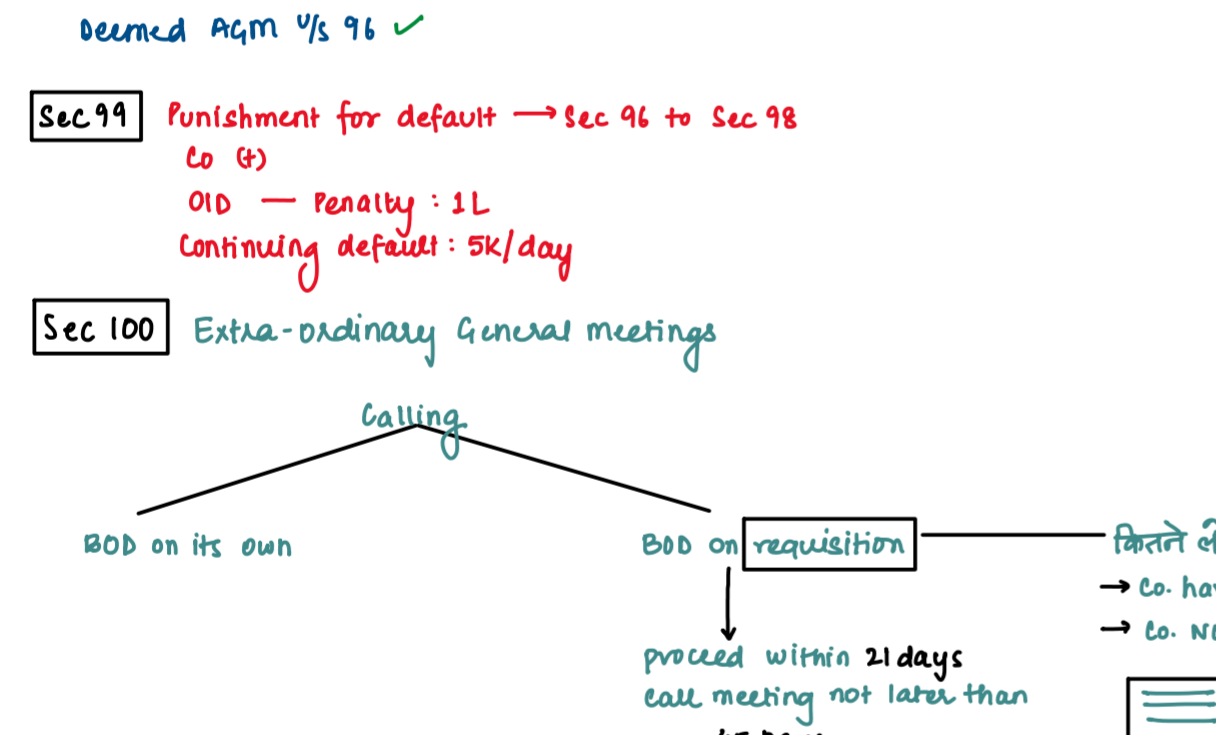 Deemed AGM U/s 96 ✓
Sec 99 Punishment for default → Sec 96 to Sec 98
Co (+)
OID — Penalty : 1L
Continuing default : 5K/day
Sec 100 Extra-ordinary General meetings
Calling
BOD on its own
BOD on requisition
कितने
→ Co.
→ Co.
proceed within 21 days
call meeting not later than